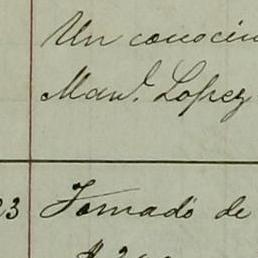 Un conocim
Manl. Lopez
23 Tomado de